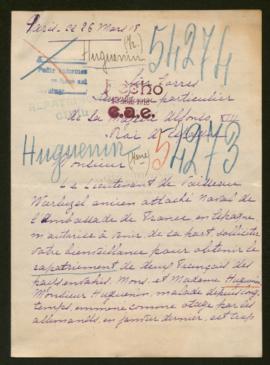 Paris, ce 26 Mars 18
Huguenin (Mr)
54274
Torres
Hecho
particulier
C.a.e.
de Sa Majesté Alfonso XIII
Roi
54273
Huguenin (Mme)
Monsieur
Le Lieutenant de Vaisseau
ancien attaché naval de
l'Ambassade de France en Espagne
m'autorise à venir de sa part solliciter
votre bienveillance pour obtenir le
rapatriement de deux Français des
pays envahis. Mons. et Madame Huguenin
Monsieur Huguenin, malade depuis long
temps, emmené comme otage par les
allemands, en janvier dernier, est trop